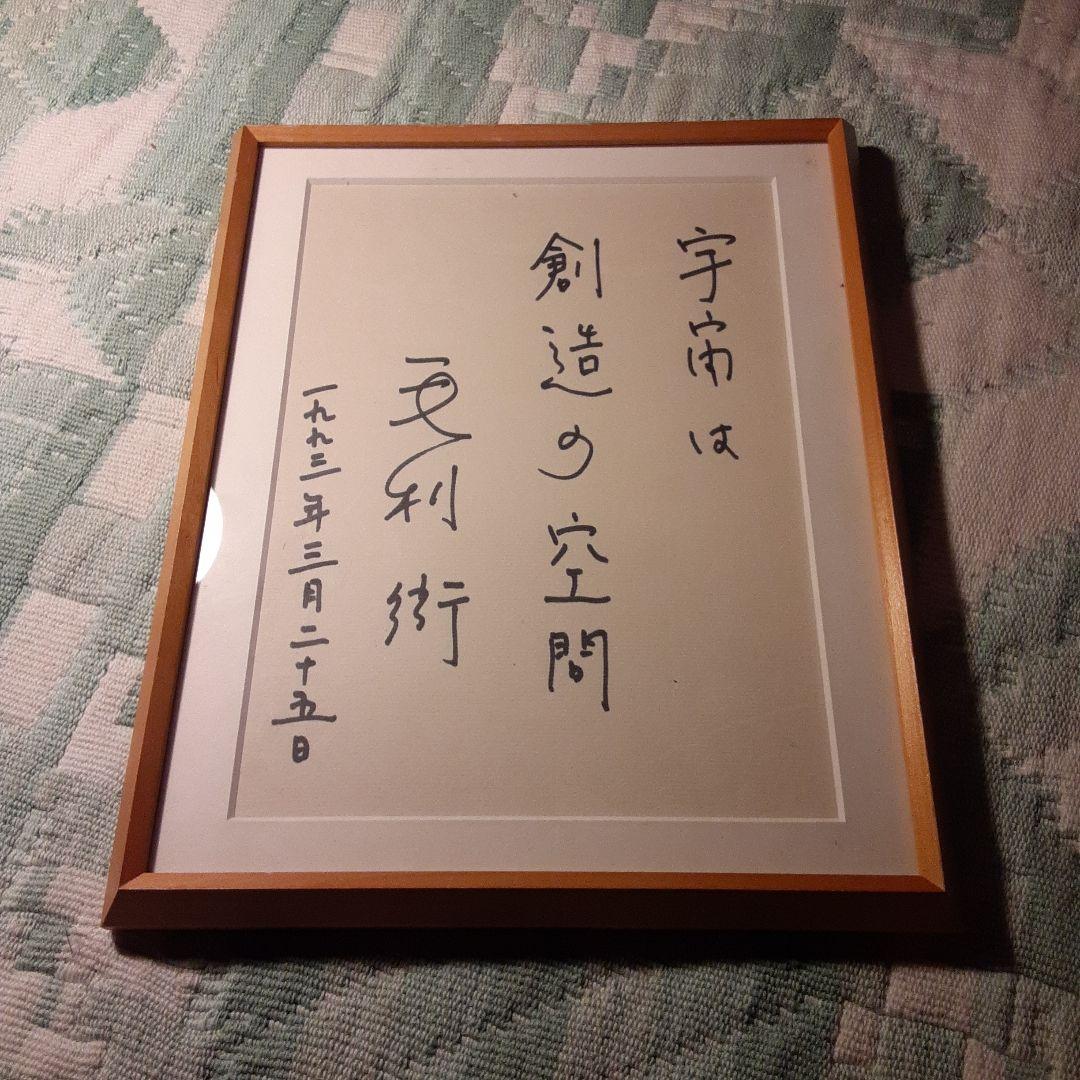 宇宙は
創造の空間
毛利衛
一九九三年三月二十五日